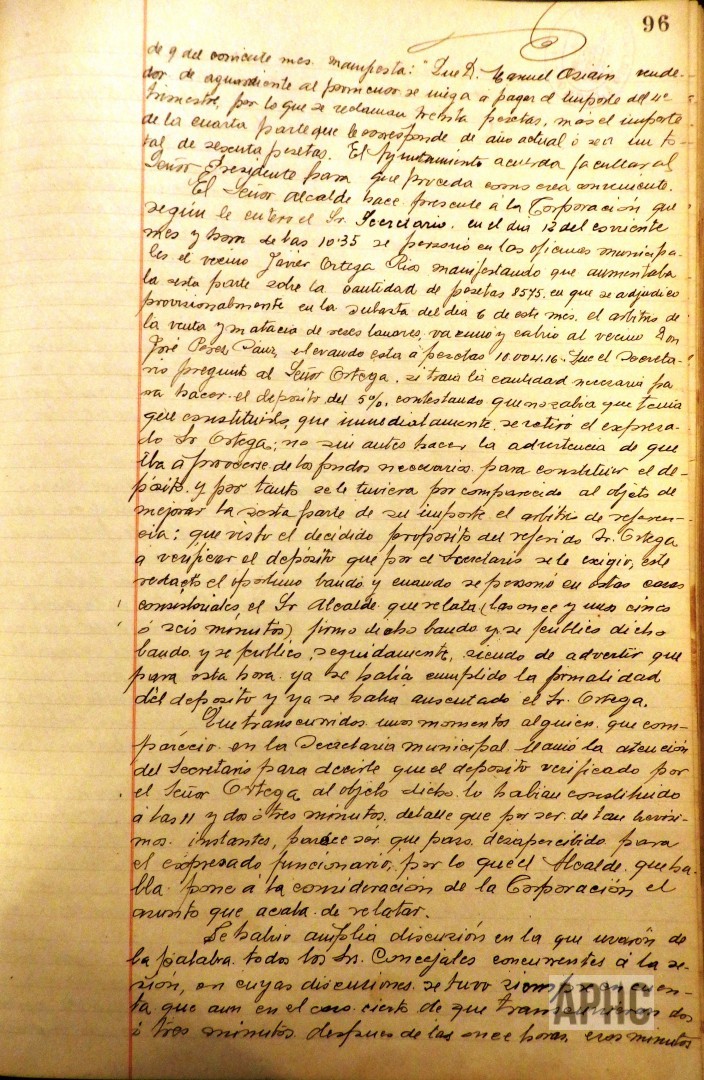 96
de 9 del corriente mes. manifiesta: "Que D. Manuel Osiain vende-
dor de aguardiente al pormenor se niega á pagar el importe del 4º
trimestre, por lo que se reclaman treinta pesetas, más el importe
de la cuarta parte que le corresponde de año actual ó sea un to-
tal de sesenta pesetas. El Ayuntamiento acuerda facultar al
Señor Presidente para que proceda como crea conveniente.
El Señor Alcalde hace presente á la Corporación que
según le entero el Sr. Secretario, en el dia 12 del corriente
mes y hora de las 10'35 se personó en las oficinas municipa-
les el vecino Javier Ortega Rios manifestando que aumentaba
la sesta parte sobre la cantidad de pesetas 8575, en que se adjudico
provisionalmente en la subasta del dia 6 de este mes, el arbitrio de
la venta y matacia de reses lanares, vacuno y cabrio al vecino Don
José Perez Sanz, elevando esta á pesetas 10.004,16. Que el Secreta-
rio preguntó al Señor Ortega, si traia la cantidad necesaria pa
ra hacer el deposito del 5%, contestando que no sabia que tenia
que constituirlo, que inmediatamente se retiro el expresa-
do Sr. Ortega; no sin antes hacer la advertencia de que
iba á proveerse de los fondos necesarios para constituir el de-
pósito y por tanto se le tuviera por comparecido al objeto de
mejorar la sesta parte de su importe el arbitrio de referen-
cia: que visto el decidido proposito del referido Sr. Ortega
a verificar el depósito que por el Secretario se le exigio, este
redactó el oportuno bando y cuando se personó en estas casas
consistoriales, el Sr. Alcalde que relata (las once y unos cinco
ó seis minutos) firmo dicho bando y se publico dicho
bando y se publico, seguidamente, siendo de advertir que
para esta hora ya se habia cumplido la formalidad
del deposito y ya se habia ausentado el Sr. Ortega.
Que transcurridos unos momentos alguien que com-
parecio en la Secretaria municipal llamó la atención
del Secretario para decirle que el deposito verificado por
el Señor Ortega al objeto dicho lo habian constituido
á las 11 y dos ó tres minutos, detalle que por ser de tan brevisi-
mos instantes, parece ser que paso desapercibido para
el expresado funcionario, por lo que el Alcalde que ha-
bla pone á la consideración de la Corporación el
asunto que acaba de relatar.
Se habrio amplia discusión en la que usaron de
la palabra todos los Srs. Concejales concurrentes á la se-
sión, en cuyas discusiones se tuvo siempre en cuen-
ta que aun en el caso cierto de que transcurrieron dos
ó tres minutos despues de las once horas, esos minutos
APHG